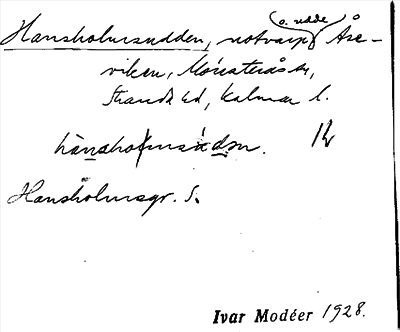 o. udde
Hansholmsudden, notvarp, Åse-
viken, Mönsterås sn,
Stranda hd, Kalmar l.
hànsho
Hansholmsgr. S.
Ivar Modéer 1928.